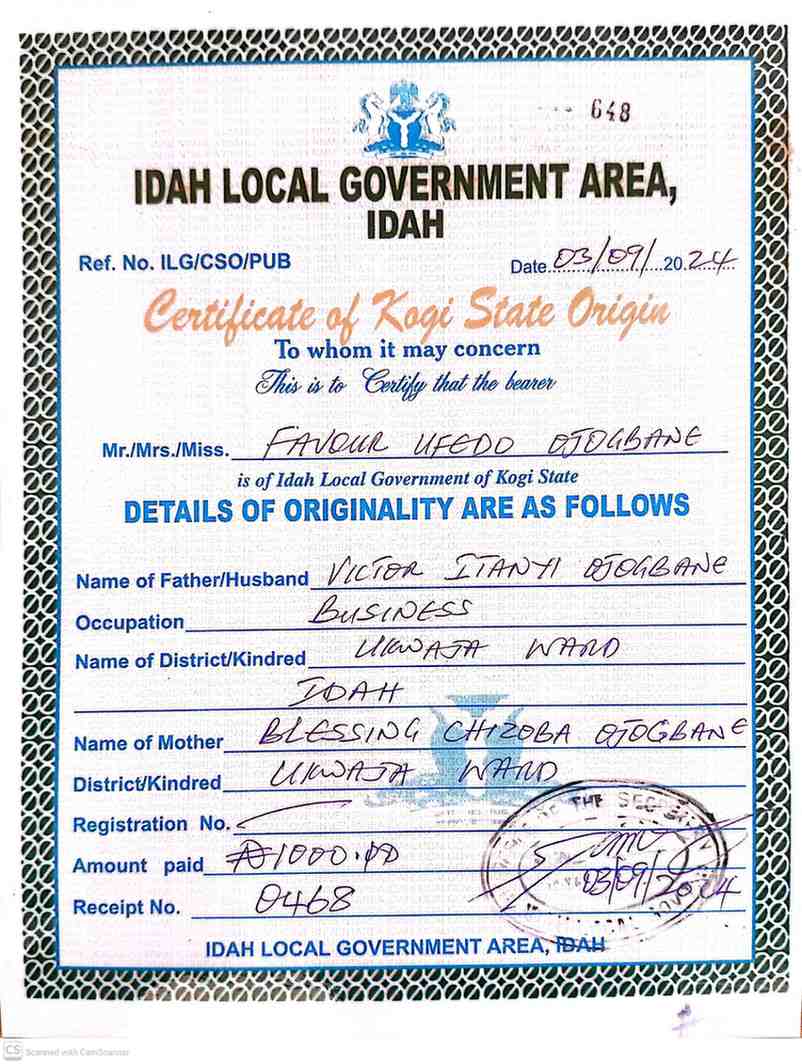 648
IDAH LOCAL GOVERNMENT AREA,
IDAH
Ref. No. ILG/CSO/PUB
Date 03/09/ 2024
Certificate of Kogi State Origin
To whom it may concern
This is to Certify that the bearer
Mr./Mrs./Miss. FAVOUR UFEDO OJOGBANE
is of Idah Local Government of Kogi State
DETAILS OF ORIGINALITY ARE AS FOLLOWS
Name of Father/Husband VICTOR ITANYI OJOGBANE
Occupation BUSINESS
Name of District/Kindred UKWAJA WARD
IDAH
Name of Mother BLESSING CHIZOBA OJOGBANE
District/Kindred UKWAJA WARD
Registration No.
Amount paid ₦1000.00
Receipt No. 0468
THE
03/09/2024
IDAH LOCAL GOVERNMENT AREA, IDAH
CS Scanned with CamScanner